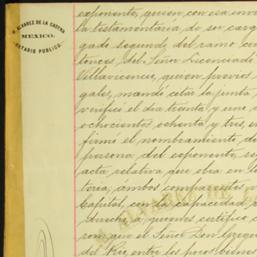 M. ALVAREZ DE LA CADENA
MEXICO.
NOTARIO PUBLICO.
exponente, quien con esa inves
la testamentaría de su carg
gado segundo del ramo civ
tonces, del Señor Licenciado
Villavicencio, quien previos
gales, mandó citar la junta
verificó el día treinta y uno d
ochocientos ochenta y tres, en
firme el nombramiento de
persona del exponente, se
acta relativa que obra en l
toria, ambos comparecientes
Capital, con la capacidad
derecho, á quienes certifico
ron: que el Señor Don Grego
del Rio entre los pocos bienes